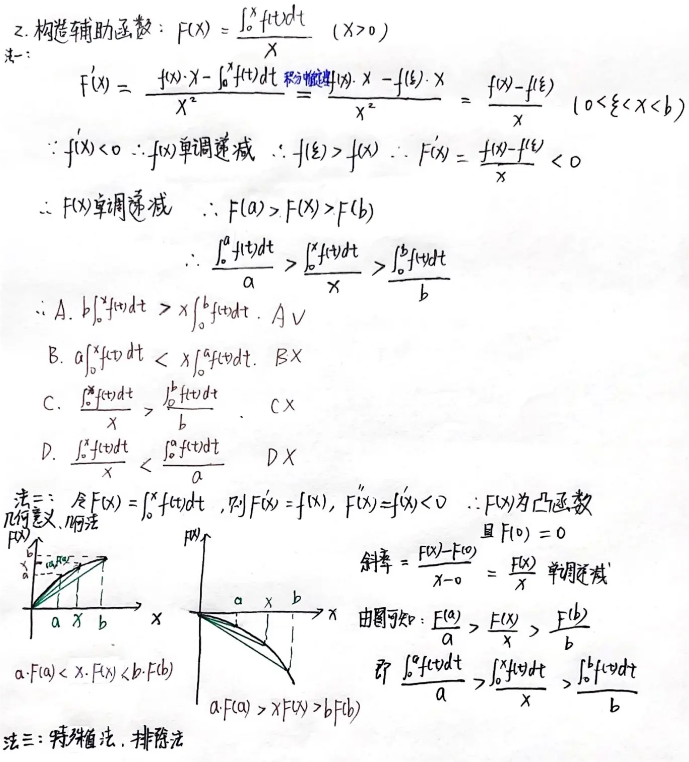 2. 构造辅助函数: F(x) = ∫₀ˣf(t)dt / x (x>0)
法一:
F'(x) = (f(x)·x - ∫₀ˣf(t)dt) / x² 积分中值定理 = (f(x)·x - f(ξ)·x) / x² = (f(x)-f(ξ)) / x (0<ξ<x<b)
∵ f'(x)<0 ∴ f(x)单调递减 ∴ f(ξ)>f(x) ∴ F'(x) = (f(x)-f(ξ)) / x < 0
∴ F(x)单调递减 ∴ F(a)>F(x)>F(b)
∴ ∫₀ᵃf(t)dt / a > ∫₀ˣf(t)dt / x > ∫₀ᵇf(t)dt / b
∴ A. b∫₀ˣf(t)dt > x∫₀ᵇf(t)dt. A√
B. a∫₀ˣf(t)dt < x∫₀ᵃf(t)dt. B×
C. ∫₀ˣf(t)dt / x > ∫₀ᵇf(t)dt / b. C×
D. ∫₀ˣf(t)dt / x < ∫₀ᵃf(t)dt / a D×
法二: 令F(x) = ∫₀ˣf(t)dt, 则F'(x) = f(x), F''(x) = f'(x)<0 ∴ F(x)为凸函数
几何意义、几何法
且F(0) = 0
F(x)
b
x
a
a x b x
a·F(a) < x·F(x) < b·F(b)
F(x)
a x b x
a·F(a) > xF(x) > bF(b)
斜率 = (F(x)-F(0)) / (x-0) = F(x) / x 单调递减
由图可知: F(a) / a > F(x) / x > F(b) / b
即 ∫₀ᵃf(t)dt / a > ∫₀ˣf(t)dt / x > ∫₀ᵇf(t)dt / b
法三: 特殊值法、排除法